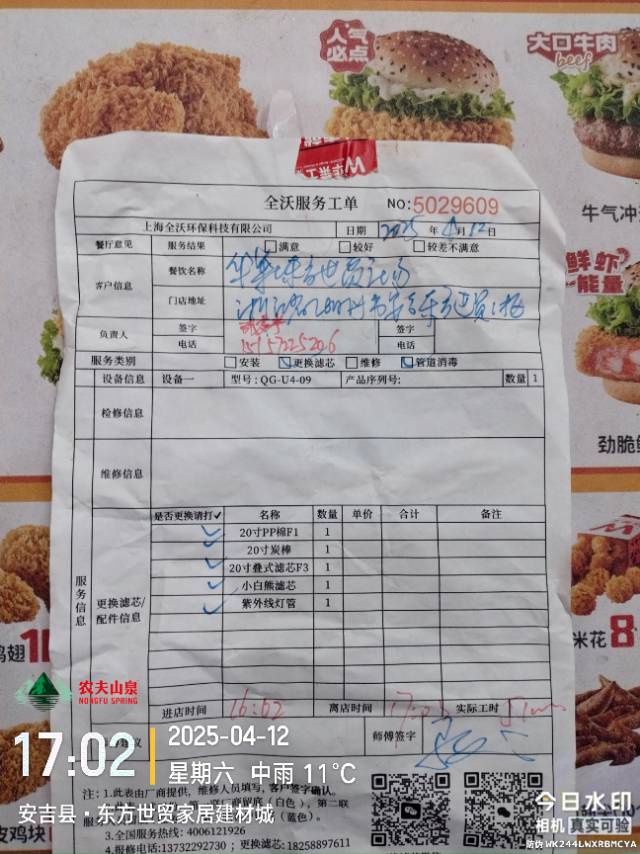 人气
必点
大口牛肉
beef
牛气冲
全沃服务工单 NO:5029609
上海全沃环保科技有限公司 日期 2025 年 4 月 12 日
餐厅意见 服务结果 满意 较好 较差不满意
客户信息 餐饮名称
门店地址
鲜虾
能量
负责人 签字 签字
电话 15757225206 电话
服务类别 安装 更换滤芯 维修 管道消毒
设备信息 设备一 型号:QG-U4-09 产品序列号: 数量 1
检修信息
劲脆
维修信息
是否更换请打✓ 名称 数量 单价 合计 备注
✓ 20寸PP棉F1 1
✓ 20寸炭棒 1
✓ 20寸叠式滤芯F3 1
✓ 小白熊滤芯 1
✓ 紫外线灯管 1
服务信息
更换滤芯/
配件信息
鸡翅
米花 8
农夫山泉
NONGFU SPRING
进店时间 16:02 离店时间 实际工时
师傅签字
17:02
2025-04-12
星期六 中雨 11°C
安吉县·东方世贸家居建材城
注:1.此表由厂商提供,维修人员填写,客户签字确认。
3.全国服务热线:4006121926
4.报修热线:13732292730; 18258897611
皮鸡块
今日水印
相机 真实可验
防伪 WK244LWXRBMCYA